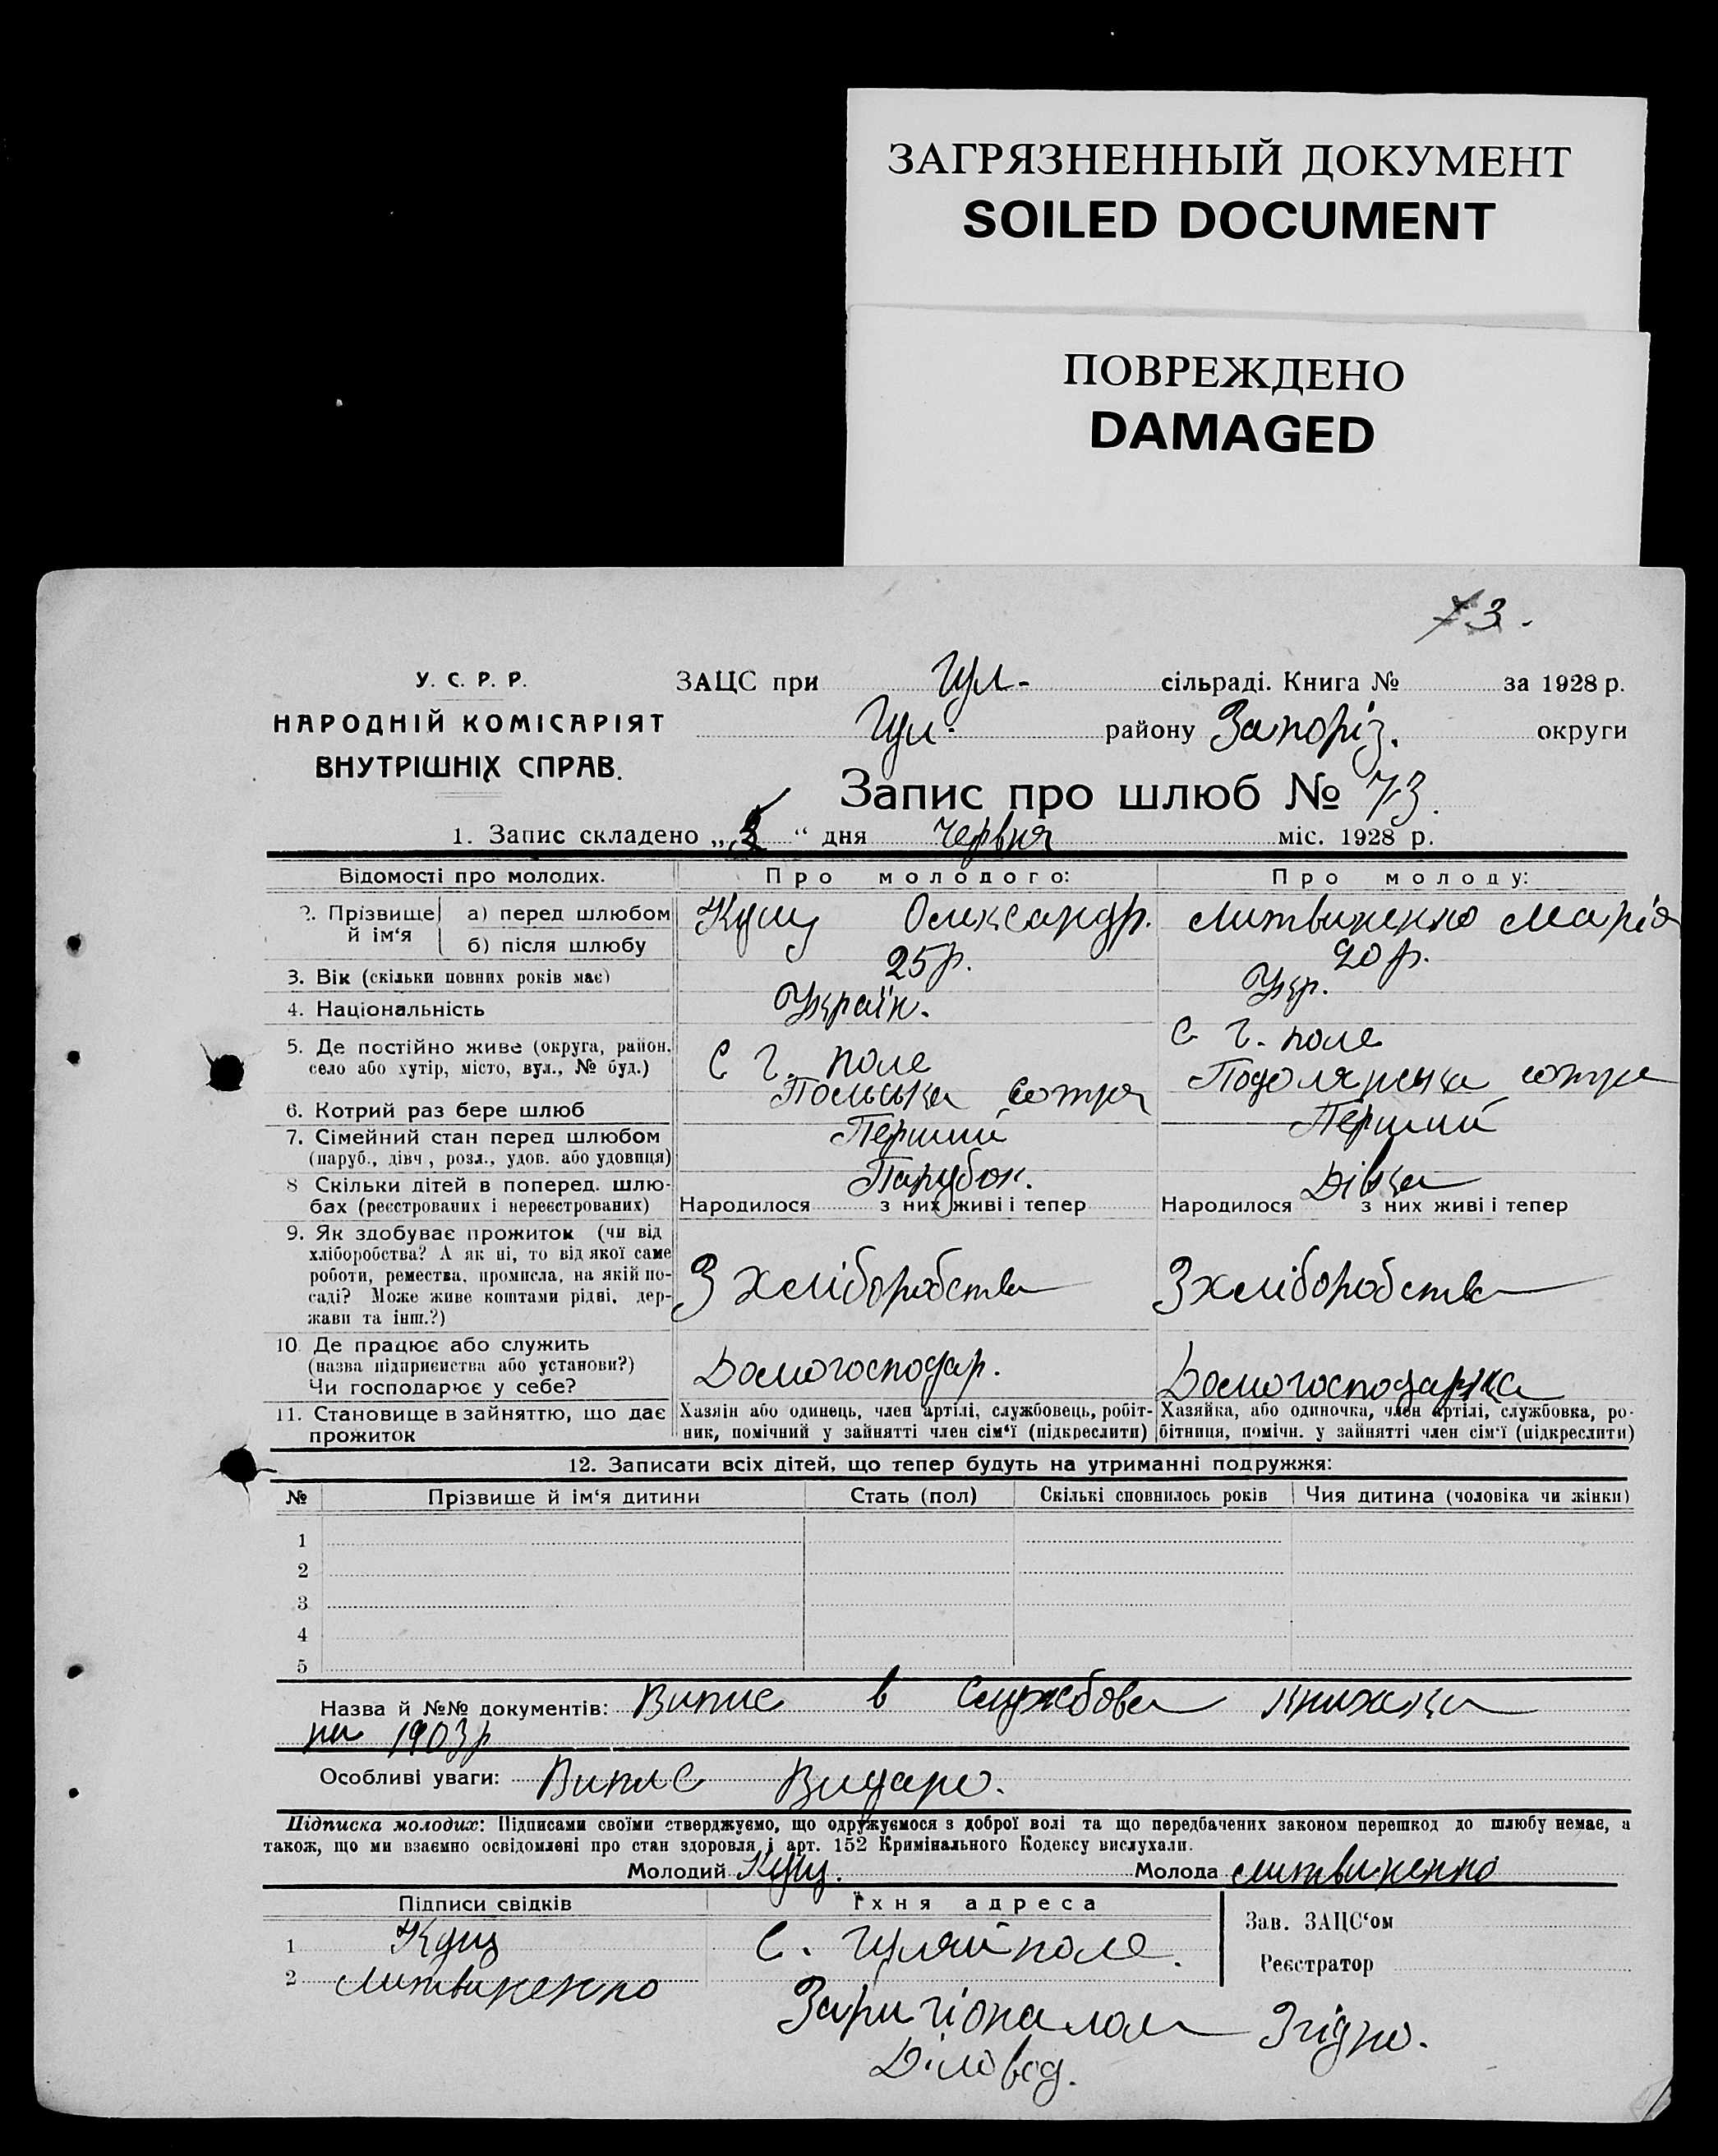 ЗАГРЯЗНЕННЫЙ ДОКУМЕНТ
SOILED DOCUMENT
ПОВРЕЖДЕНО
DAMAGED
73.
У. С. Р. Р.
НАРОДНІЙ КОМІСАРІЯТ
ВНУТРІШНІХ СПРАВ.
ЗАЦС при Гул- сільраді. Книга № за 1928 р.
Гул. району Запоріз. округи
Запис про шлюб № 73.
1. Запис складено „ “ дня червня міс. 1928 р.
Відомості про молодих. Про молодого: Про молоду:
2. Прізвище й ім‘я а) перед шлюбом Кущ Олександр. Литвиненко Марія
б) після шлюбу
3. Вік (скільки повних років має) 25 р. 20 р.
4. Національність Україн. Укр.
5. Де постійно живе (округа, район, село або хутір, місто, вул., № буд.) С Г. поле Польська сотня С Г. поле Подолянська сотня
6. Котрий раз бере шлюб Перший Перший
7. Сімейний стан перед шлюбом (паруб., дівч, розл., удов. або удовиця) Парубок. Дівка
8 Скільки дітей в поперед. шлюбах (реєстрованих і нереєстрованих) Народилося з них живі і тепер Народилося з них живі і тепер
9. Як здобуває прожиток (чи від
хліборобства? А як ні, то від якої саме
роботи, ремества, промисла, на якій по-
саді? Може живе коштами рідні, дер-
жави та інш.?)
З хліборобства З хліборобства
10. Де працює або служить
(назва підприємства або установи?)
Чи господарює у себе?
Домогосподар. Домогосподарка
11. Становище в зайняттю, що дає прожиток
Хазяїн або одинець, член артілі, службовець, робіт-
ник, помічний у зайнятті член сім‘ї (підкреслити)
Хазяйка, або одиночка, член артілі, службовка, ро-
бітниця, помічн. у зайнятті член сім‘ї (підкреслити)
12. Записати всіх дітей, що тепер будуть на утриманні подружжя:
№ Прізвище й ім‘я дитини Стать (пол) Скількі сповнилось років Чия дитина (чоловіка чи жінки)
1
2
3
4
5
Назва й №№ документів: Випис в Службова книжка
на 1903 р
Особливі уваги: Випис Видано.
Підписка молодих: Підписами своїми стверджуємо, що одружуємося з доброї волі та що передбачених законом перешкод до шлюбу немає, а
також, що ми взаємно освідомлені про стан здоровля і арт. 152 Кримінального Кодексу вислухали.
Молодий Кущ. Молода Литвиненко
Підписи свідків Їхня адреса
1 Кущ С. Гуляйполе.
2 Литвиненко
Зав. ЗАЦС‘ом
Реєстратор
Згідно.
Діловод.